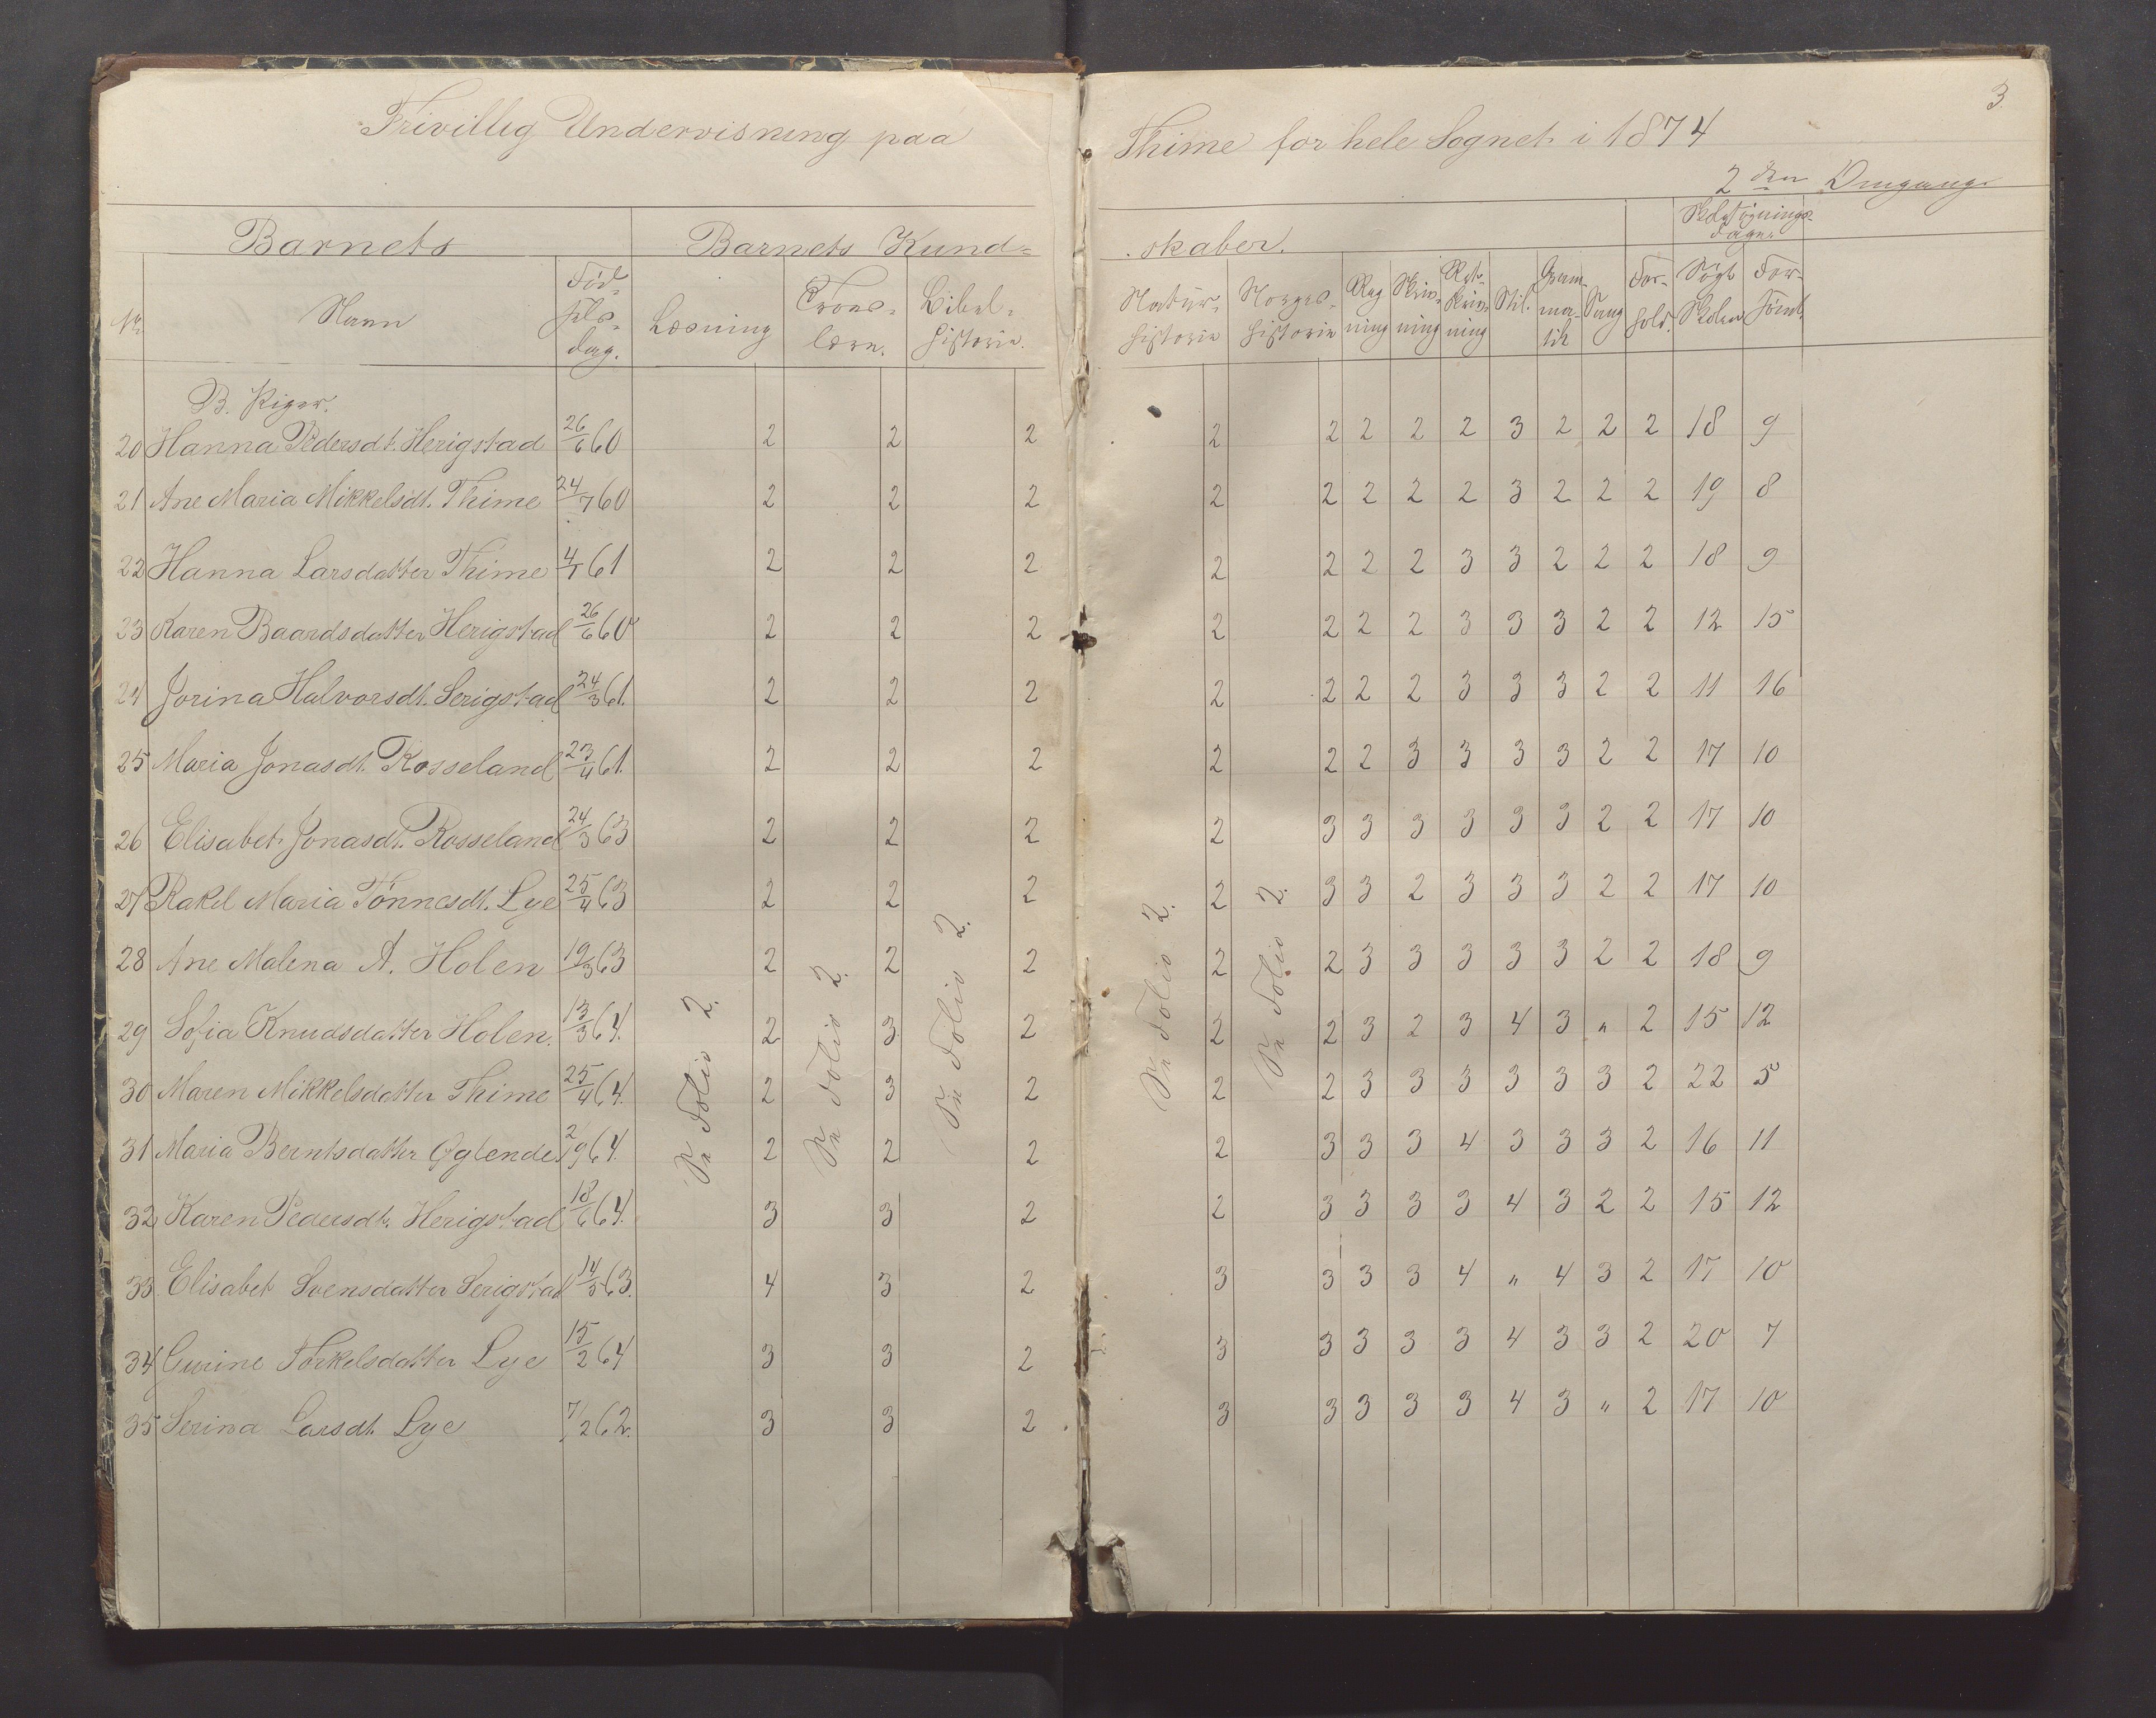 3
Frivillig Undervisning paa Thime for hele Sognet i 1874
2den Omgang.
Barnets Barnets Kund= skaber. Skolesøgnings= dage.
Nr. Navn Fød= sels= dag. Læsning Troes= lære. Bibel= historie. Natur= historie Norges= historie Reg ning Skriv= ning Ret= skriv= ning Stil. Gram= ma= tik Sang For= hold. Søgt Skolen For= sømt.
B. Piger.
20 Hanna Pedersdt. Herigstad 26/6 60 2 2 2 2 2 2 2 2 3 2 2 2 18 9
21 Ane Maria Mikkelsdt. Thime 24/7 60 2 2 2 2 2 2 2 2 3 2 2 2 19 8
22 Hanna Larsdatter Thime 4/1 61 2 2 2 2 2 2 2 3 3 2 2 2 18 9
23 Karen Baardsdatter Herigstad 26/6 60 2 2 2 2 2 2 2 3 3 3 2 2 12 15
24 Jorina Halvorsdt. Serigstad 24/3 61. 2 2 2 2 2 2 2 3 3 3 2 2 11 16
25 Maria Jonasdt. Rosseland 23/4 61. 2 2 2 2 2 2 3 3 3 3 2 2 17 10
26 Elisabet Jonasdt. Rosseland 24/3 63 2 2 2 2 3 3 3 3 3 3 2 2 17 10
27 Rakel Maria Tönnesdt. Lye 25/4 63 2 2 2 2 3 3 2 3 3 3 2 2 17 10
28 Ane Malena A. Holen 19/3 63 2 2 2 2 2 3 3 3 3 3 2 2 18 9
29 Sofia Knudsdatter Holen. 13/3 64. 2 3 2 2 2 3 2 3 4 3 " 2 15 12
30 Maren Mikkelsdatter Thime 25/4 64. 2 3 2 2 2 3 3 3 3 3 3 2 22 5
31 Maria Berntsdatter Øglende 2/9 64. 2 2 2 2 3 3 3 4 3 3 3 2 16 11
32 Karen Pedersdt. Herigstad 18/6 64. 3 3 2 2 3 3 3 3 4 3 2 2 15 12
33. Elisabet Svensdatter Serigstad 14/5 63. 4 3 2 3 3 3 3 4 " 4 3 2 17 10
34 Gurine Torkelsdatter Lye 15/2 64 3 3 2 3 3 3 3 3 4 3 3 2 20 7
35 Serina Larsdt. Lye 7/2 62. 3 3 2 3 3 3 3 3 4 3 " 2 17 10
Folio 2.
Folio 2.
Folio 2.
Folio 2.
Folio 2.